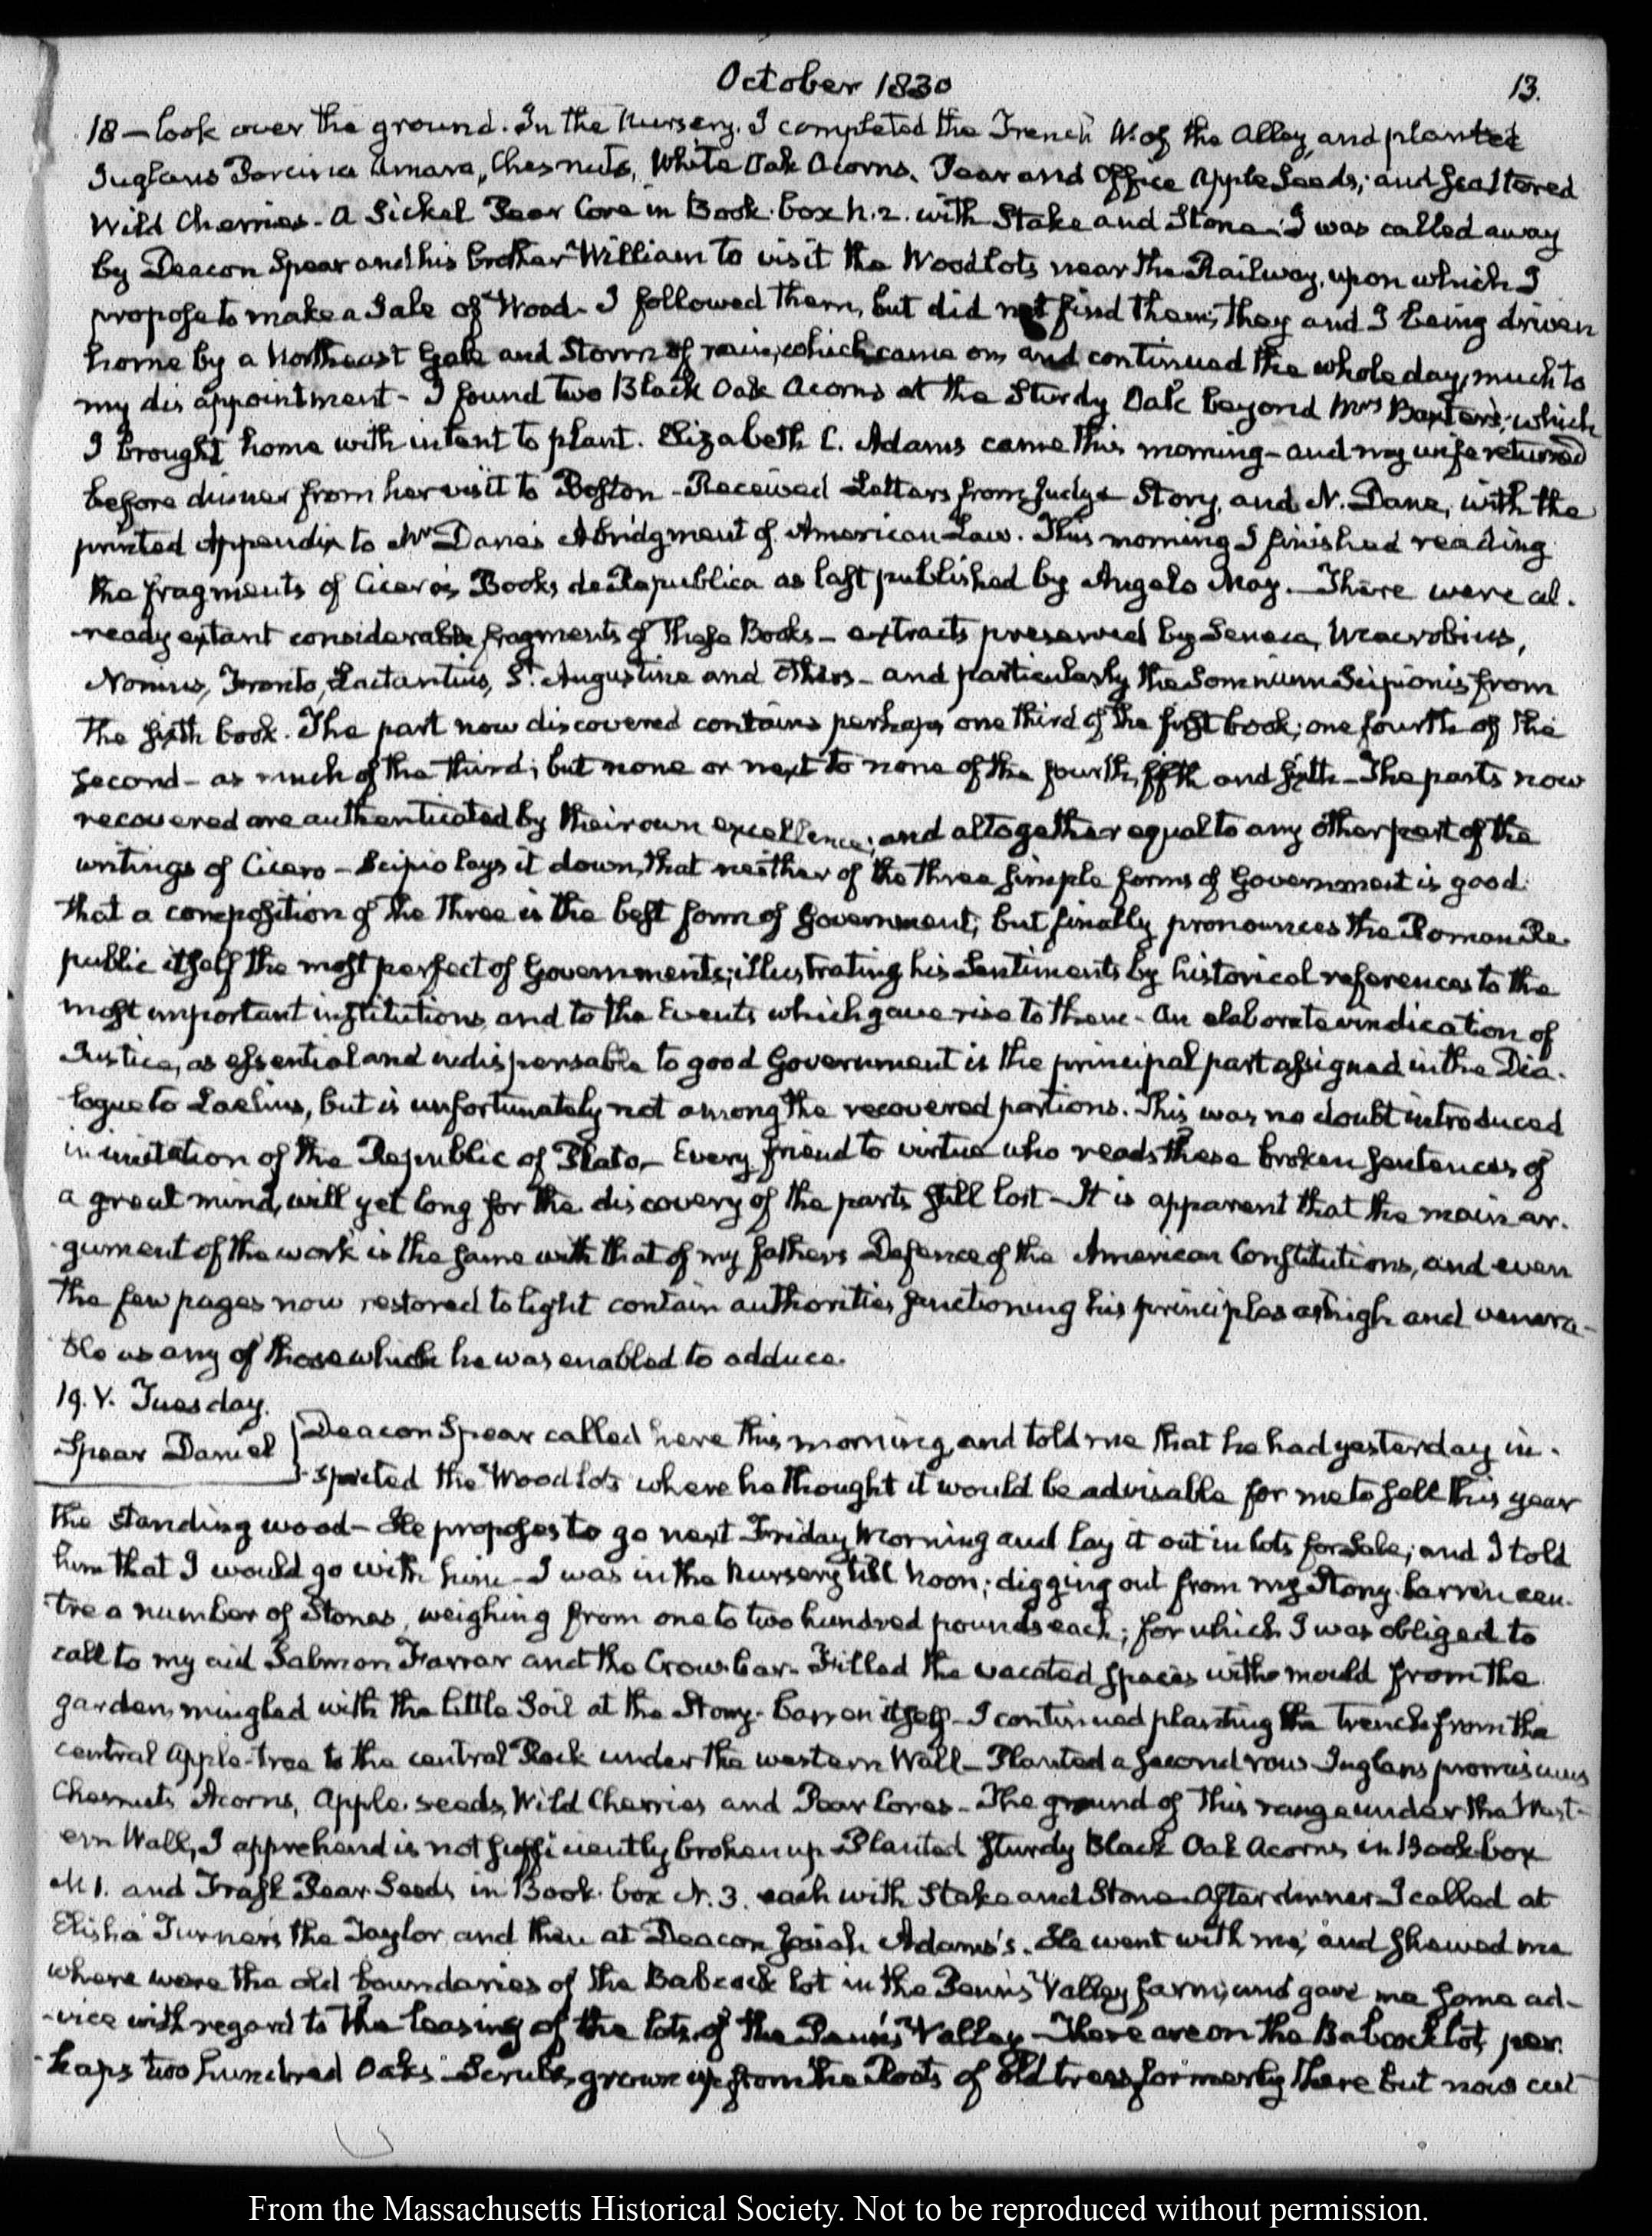 October 1830
13.
18 – look over the ground. In the Nursery. I completed the Trench N. of the Alley, and planted
Juglans Porcina Amara, Chesnuts, White Oak Acorns, Pear and Office Apple Seeds; and scattered
Wild Cherries – A Sickel Pear Core in Book-box N. 2. with Stake and Stone. I was called away
by Deacon Spear and his brother William to visit the Woodlots near the Railway, upon which I
propose to make a Sale of Wood – I followed them, but did not find them; they and I being driven
home by a Northeast Gale and Storm of rain, which came on, and continued the whole day, much to
my disappointment – I found two Black Oak Acorns at the Sturdy Oak beyond Mrs Baxter's; which
I brought home with intent to plant. Elizabeth C. Adams came this morning – and my wife returned
before dinner from her visit to Boston – Received Letters from Judge Story, and N. Dane, with the
printed Appendix to Mr Dane's Abridgment of American Law. This morning I finished reading
the fragments of Cicero's Books de Republica as last published by Angelo May. – There were al-
-ready extant considerable fragments of these Books – extracts preserved by Seneca, Macrobius,
Nonius, Fronto, Lactantius, St. Augustine and others – and particularly the Somnium Scipionis from
the sixth book. The part now discovered contains perhaps one third of the first book; one fourth of the
second – as much of the third; but none or next to none of the fourth, fifth and sixth – The parts now
recovered are authenticated by their own excellence; and altogether equal to any other part of the
writings of Cicero – Scipio lays it down, that neither of the three simple forms of Government is good
that a composition of the three is the best form of Government; but finally pronounces the Roman Re-
public itself the most perfect of Governments; illustrating his Sentiments by historical references to the
most important institutions, and to the Events which gave rise to them – An elaborate vindication of
Justice, as essential and indispensable to good Government is the principal part assigned in the Dia-
logue to Laelius, but is unfortunately not among the recovered portions. This was no doubt introduced
in imitation of the Republic of Plato – Every friend to virtue who reads these broken sentences of
a great mind, will yet long for the discovery of the parts still lost – It is apparent that the main ar-
-gument of the work is the same with that of my father's Defence of the American Constitutions, and even
the few pages now restored to light contain authorities sanctioning his principles as high and venera-
ble as any of those which he was enabled to adduce.
19. V. Tuesday.
Spear Daniel
Deacon Spear called here this morning, and told me that he had yesterday in-
-spected the Wood lots where he thought it would be advisable for me to sell this year
the standing wood – He proposes to go next Friday Morning and lay it out in lots for Sale; and I told
him that I would go with him – I was in the Nursery till Noon; digging out from my Stony-barren cen-
tre a number of Stones, weighing from one to two hundred pounds each; for which I was obliged to
call to my aid Salmon Farrar and the Crow-bar – Filled the vacated spaces with mould from the
garden, mingled with the little Soil at the Stony-barren itself – I continued planting the trench from the
central Apple-tree to the central Rock under the western Wall – Planted a second row Juglans promiscuous
Chesnuts, Acorns, Apple-seeds, Wild Cherries and Pear Cores – The ground of this range under the West-
ern Wall, I apprehend is not sufficiently broken up. Planted Sturdy Black Oak Acorns in Book-box
N. 1. and Frask Pear Seeds in Book-box N. 3. each with Stake and Stone – After dinner I called at
Elisha Turner's the Taylor, and then at Deacon Josiah Adams's. He went with me, and shewed me
where were the old boundaries of the Babcock lot in the Penn's Valley farm; and gave me some ad-
-vice with regard to the leasing of the lots of the Penn's Valley – There are on the Babcock lot, per-
-haps two hundred Oaks – Scrubs, grown up from the Roots of Old trees formerly there but now cut
From the Massachusetts Historical Society. Not to be reproduced without permission.